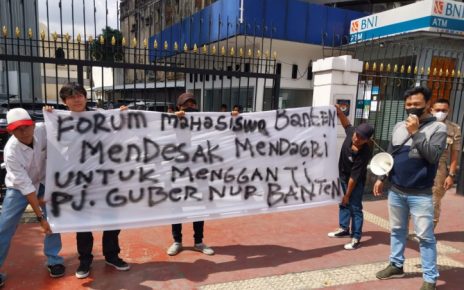 FORUM MAHASISWA BANTEN
MENDESAK MENDAGRI
UNTUK MENGGANTI
PJ. GUBERNUR BANTEN
BNI
ATM
BNI
ATM